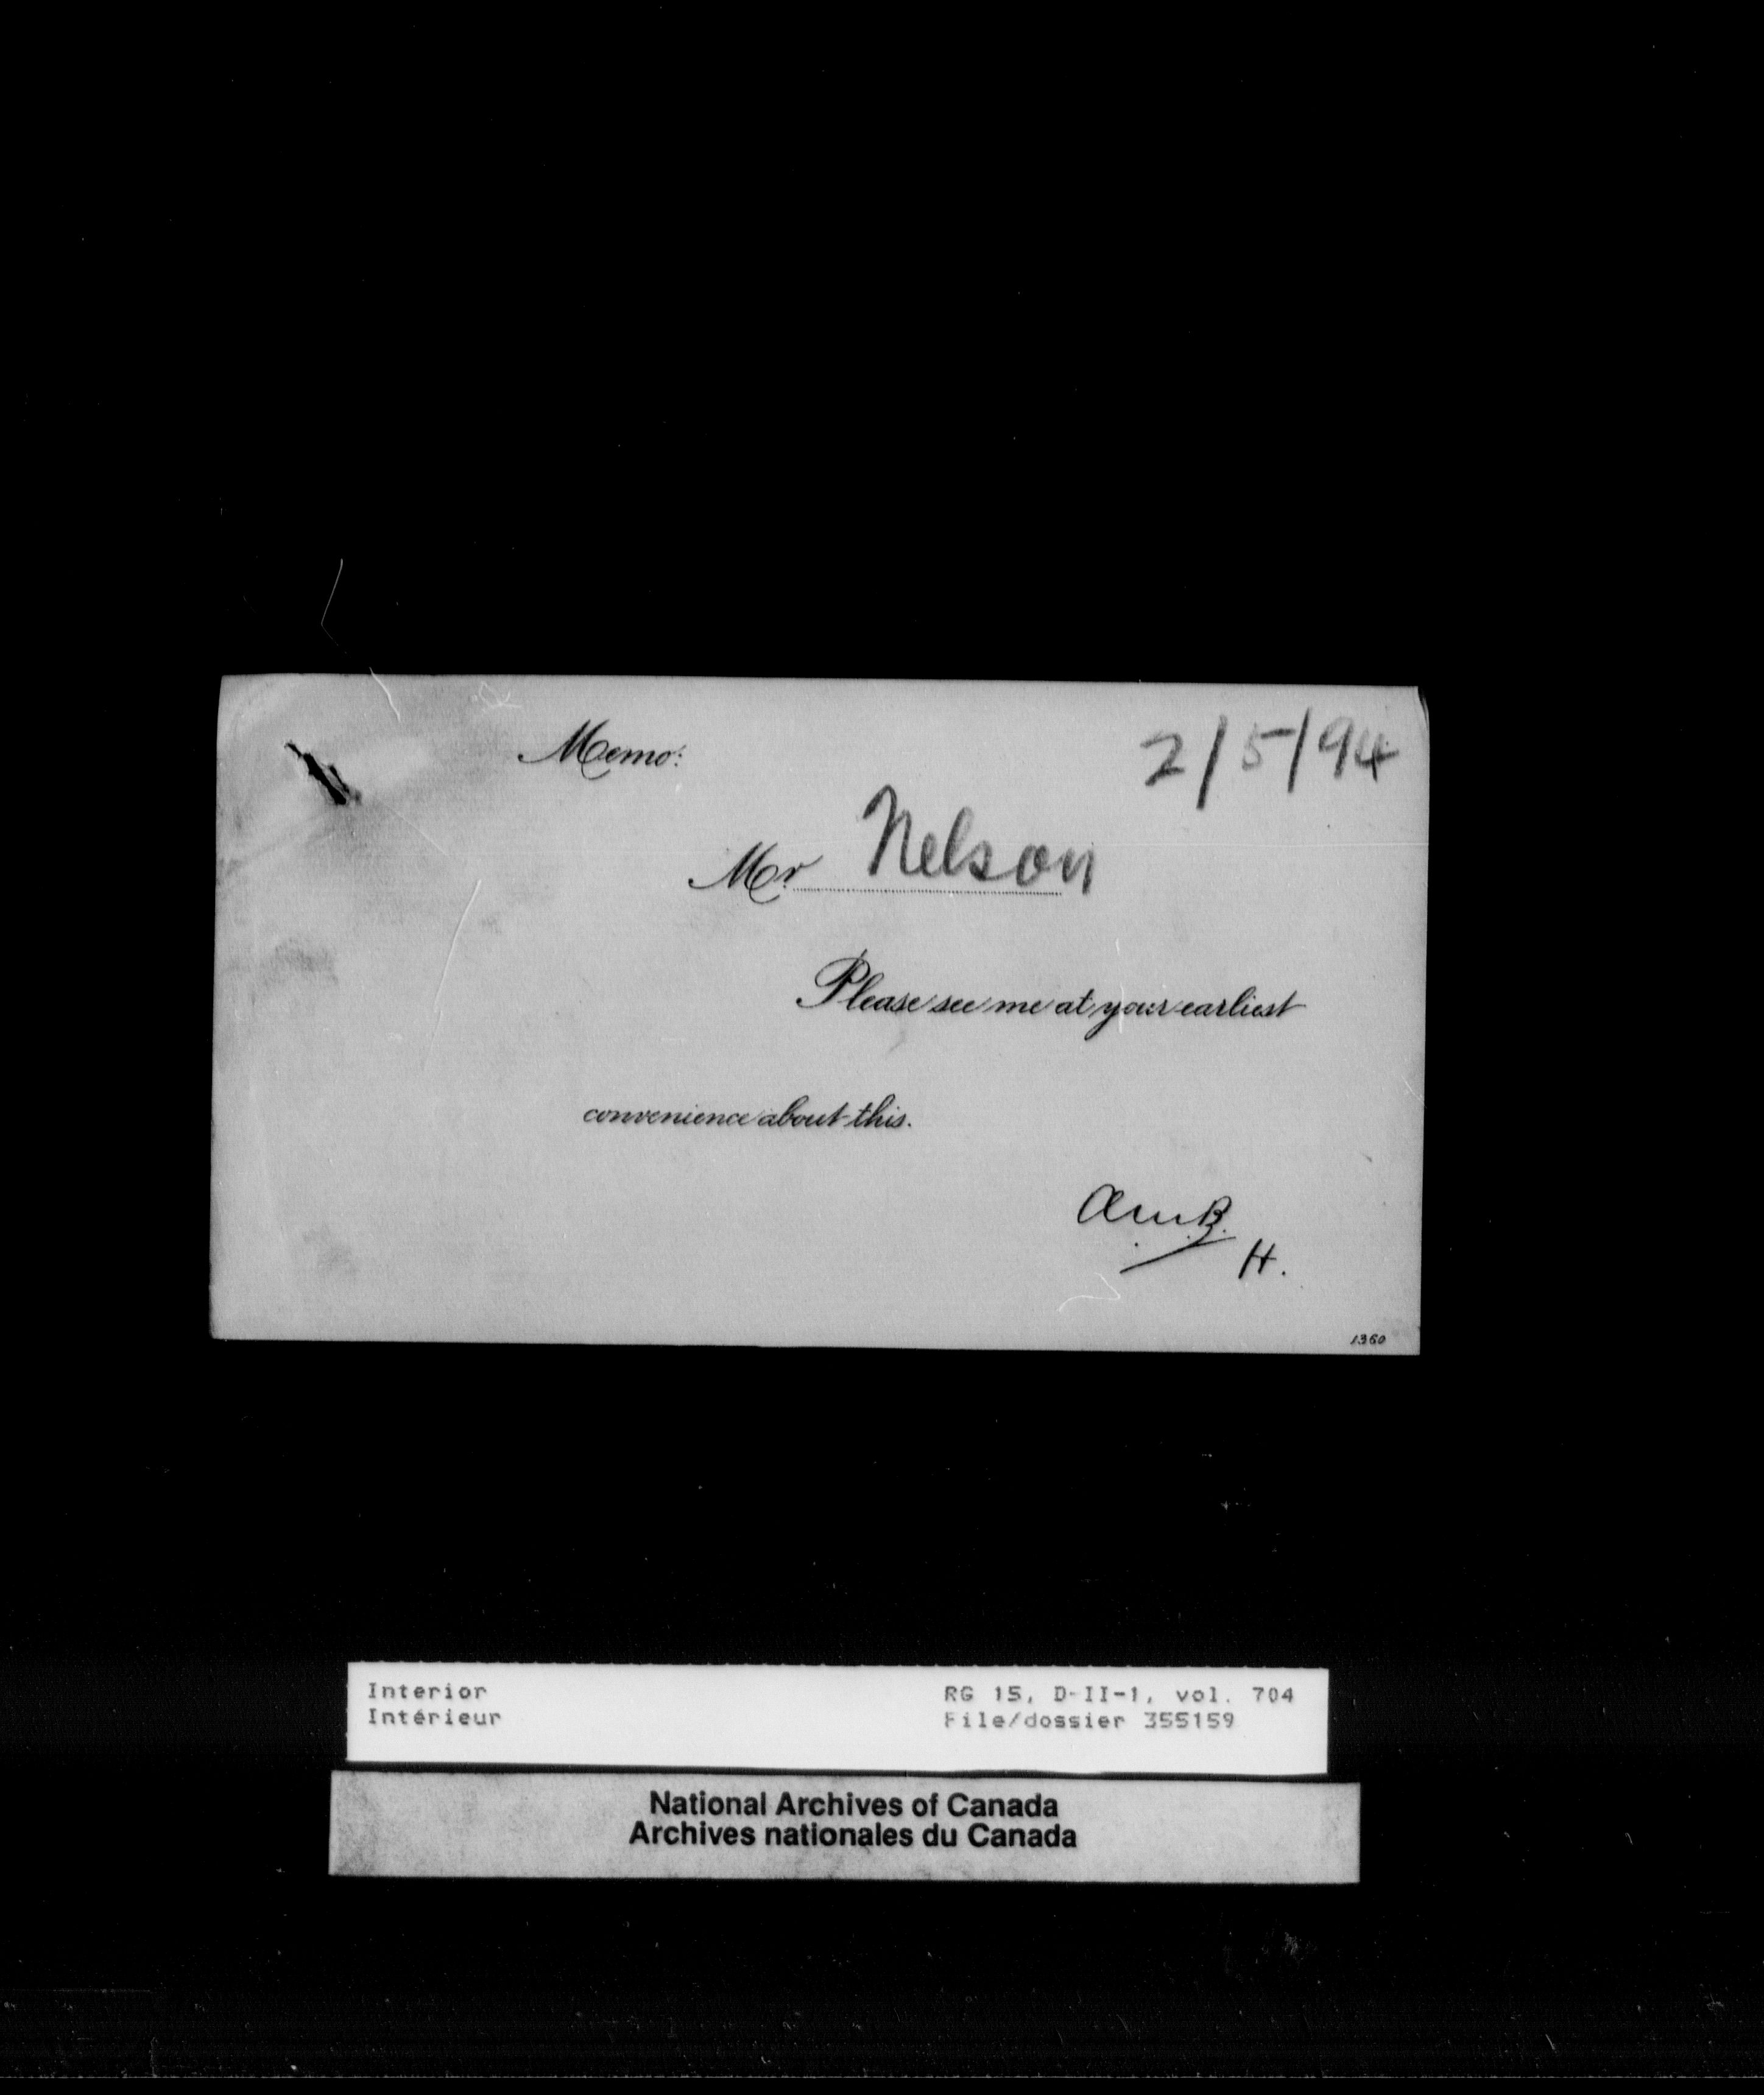 Memo:
2/5/94
Mr. Nelson
Please see me at your earliest
convenience about this.
A.M.B.
H.
1360
Interior
Intérieur
RG 15, D-II-1, vol. 704
File/dossier 355159
National Archives of Canada
Archives nationales du Canada